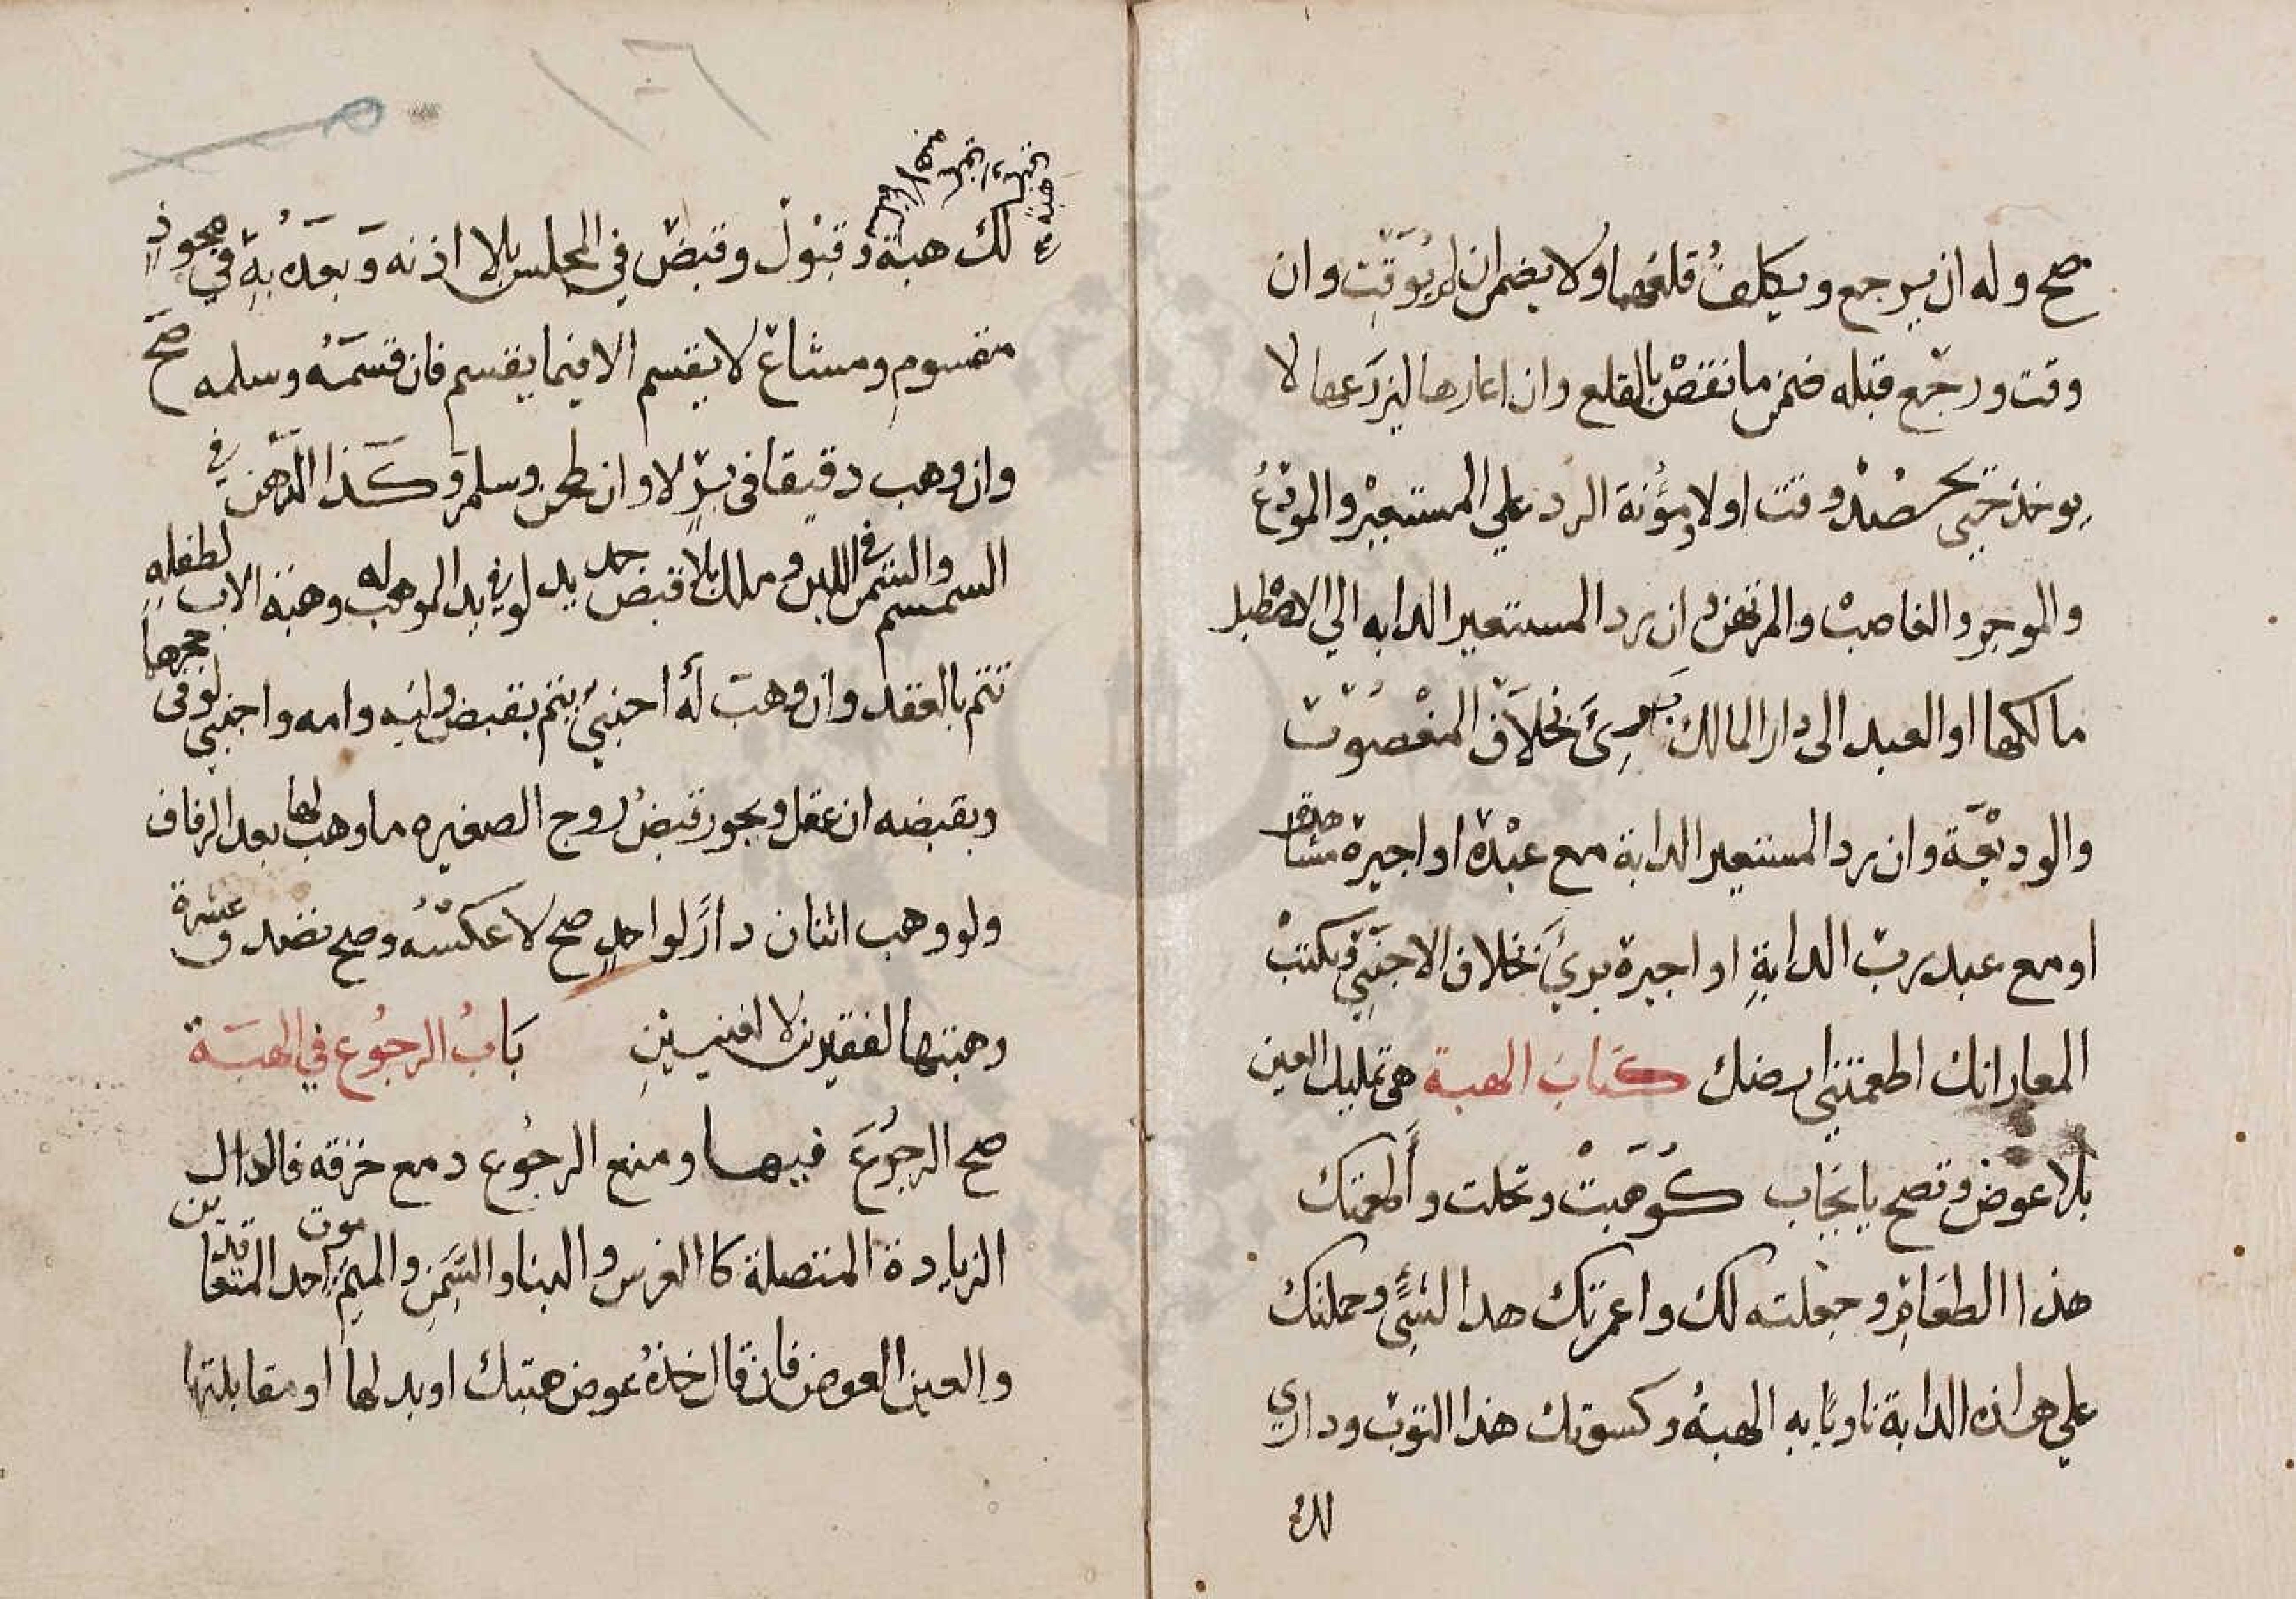 صح وله ان يرجع ويكلف قلعهما ولا يضمن ان لم يوقت وان
وقت ورجع قبله ضمن ما نقص بالقلع وان اعارها ليزرعها لا
يوخذ حتى يحصد وقت اولا ومؤنة الرد علي المستعير والمودع
والموجر والغاصب والمرتهن وان رد المستعير الدابه الي الاصطبل
مالكها او العبد الى دار المالك برئ بخلاف المغصوب
والوديعة وان رد المستعير الدابة مع عبده او اجيره مشاهرة
او مع عبد رب الدابة او اجيره برئ بخلاف الاجنبي ويكتب
المعار انك اطعمتني ارضك كتاب الهبة هي تمليك العين
بلا عوض وتصح بايجاب كوهبت ونحلت وأطعمتك
هذا الطعام وجعلته لك واعمرتك هدا الشئ وحملتك
علي هذه الدابة ناويا به الهبة وكسوتك هذا الثوب وداري
لك
لك هبة وقبول وقبض في المجلس بلا اذنه وبعده به في محوز
مقسوم ومشاع لا يقسم الا فيما يقسم فان قسمه وسلمه صح
وان وهب دقيقا فى بر لا وان طحن وسلم وكذا الدهن في
السمسم والسمن في اللبن وملك بلا قبض جديد لو في يد الموهب له وهبة الاب لطفله
تتم بالعقد وان وهب له اجنبي يتم بقبض وليه وامه واجنبي لو فى حجرها
وبقبضه ان عقل ويجوز قبض زوج الصغيره ما وهب لها بعد الزفاف
ولو وهب اثنان دارا لواحد صح لا عكسه وصح تصدق عشرة
وهبتها لفقيرين لا لغنيين باب الرجوع في الهبة
صح الرجوع فيها ومنع الرجوع دمع خزقه فالدال
الزيادة المتصلة كاالغرس والبنا والسمن والميم موت احد المتعاقدين
والعين العوض فان قال خذه عوض هبتك او بدلها او مقابلتها